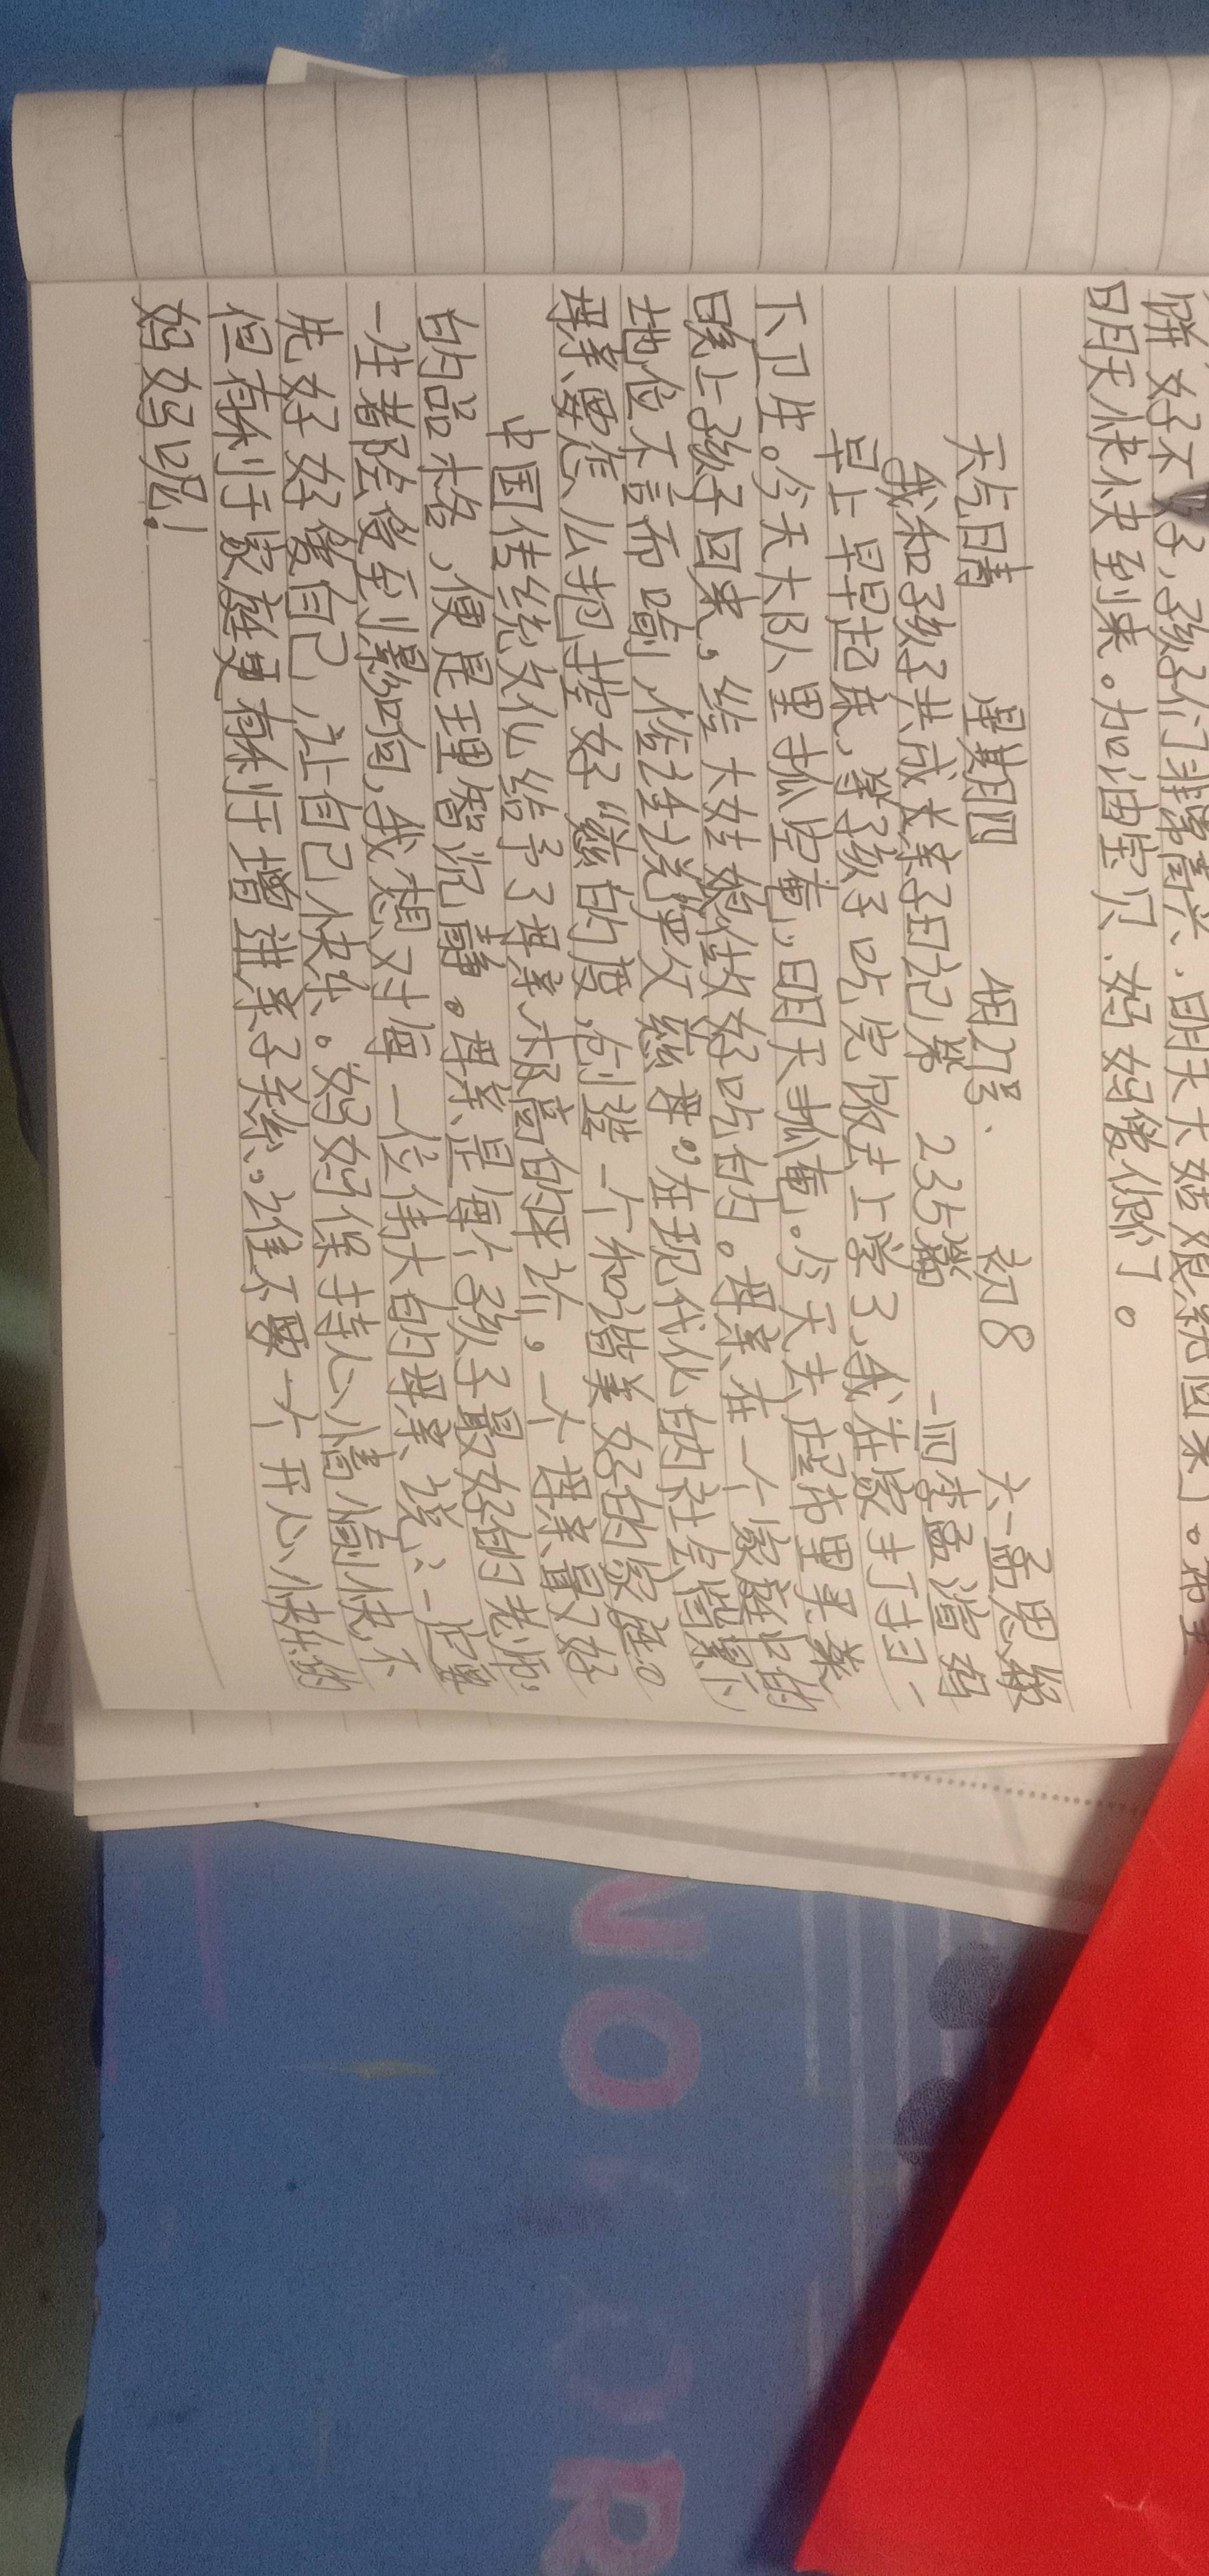 饼好不 子,孩子们非常高兴.明天大姑娘结回来
明天快快到来。加油宝贝.妈妈爱你们。
天气晴 星期四 4月27号. 初8 六一部思缘
我和孩子共成长亲子日记第 235篇 一四李孟谐妈
早上早早起床,等孩子吃完饭去上学了,我在家打扫一
下卫生。今天大队里抓“ 奄”,明天抓奄。今天去赶市里买菜
晚上孩子回来,给大娃娘俩做好吃的。母亲在一个家庭中的
地位不言而喻,俗话说“严父慈母”。在现代化的社会背景下
母亲要怎么把控好“慈”的度,创造一个和谐美好的家庭。
中国传统文化给予了母亲木及高的评价。一个母亲最好
的品格,便是理智沉静。母亲是每个孩子最好的老师。
一生着陪爱到影响,我想对每一位伟大的母亲说:一定要
先好好爱自己,让自己快乐。妈妈保持心情愉快不
但有利于家庭更有利于增进亲子关系。谁不要一个开心快乐的
妈妈呢!
NO
OR